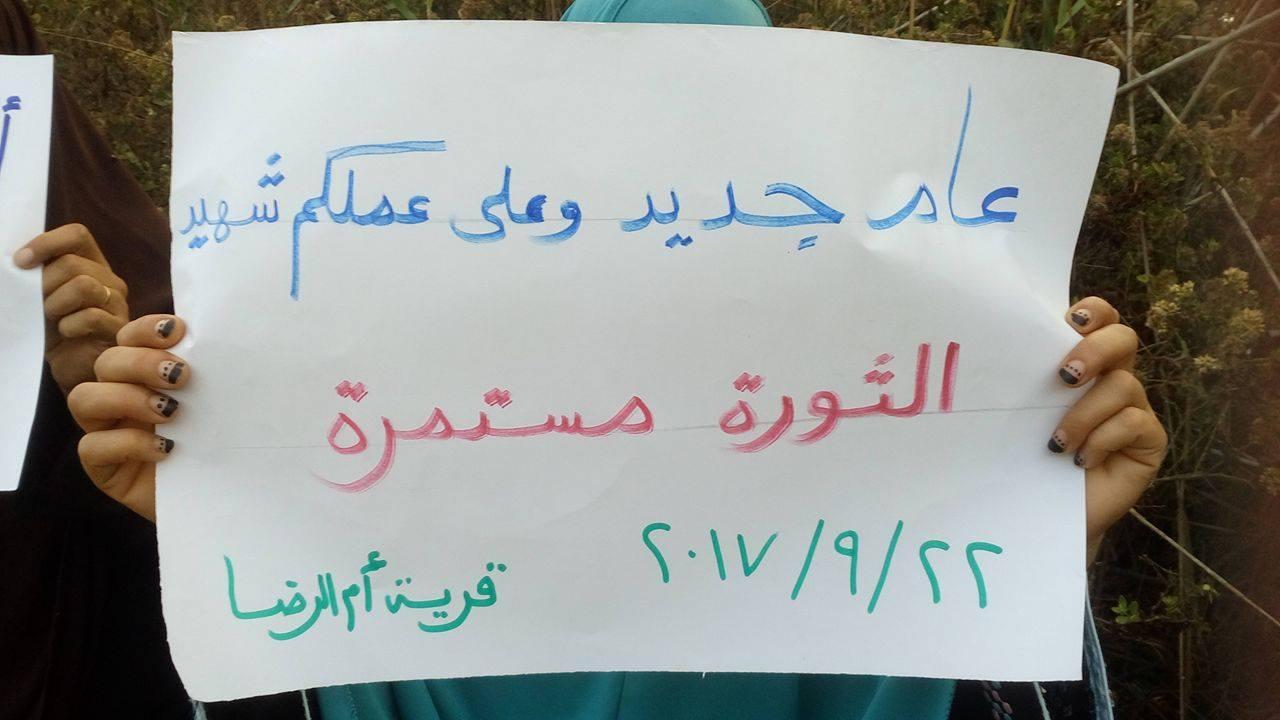 عام جديد وعلى عملكم شهيد
الثورة مستمرة
٢٢/٩/٢٠١٧
قرية أم الرضا
أ